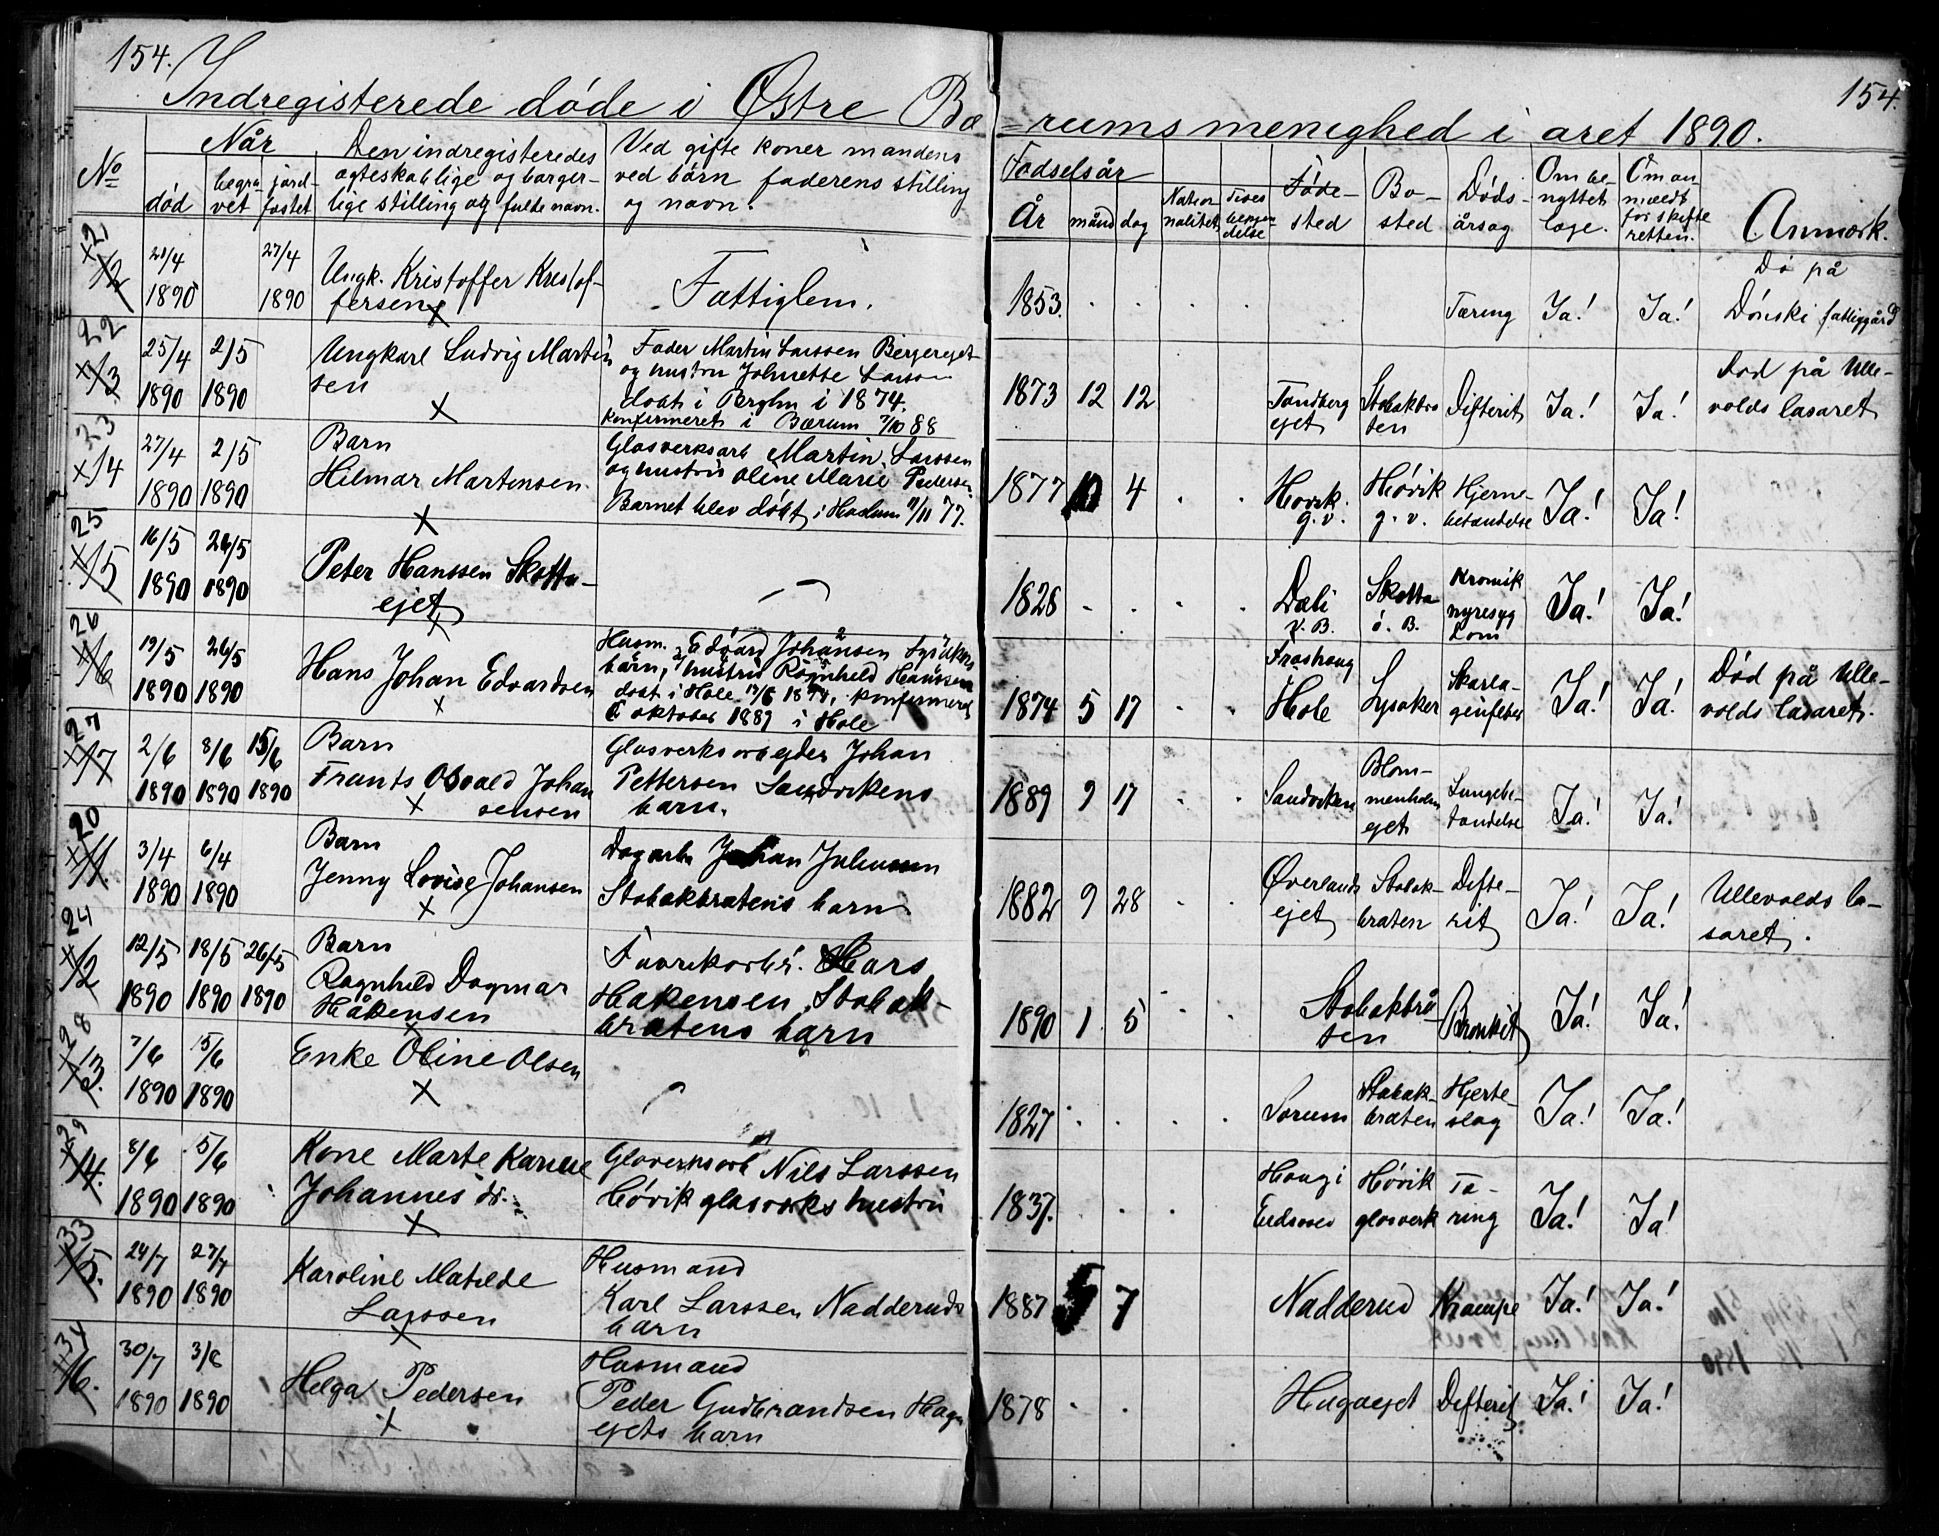 154.
154.
Indregisterede døde i Østre Bæ=rums menighed i aret 1890.
No
Når
død
begra-
vet
jord-
fæstet
Den indregisteredes
ægteskablige og borger-
lige stilling og fulde navn.
Ved gifte koner mandens
ved børn faderens stilling
og navn.
Fødselsår
År
månd
dag
Natio-
nalitet
Føde-
sted
Bo-
sted
Døds-
årsag
Om be-
nyttet
læge.
Om an-
mældt
for skifte
retten.
Anmærk.
21
12
21/4
1890
27/4
1890
Ungk. Kristoffer Kristof-
fersen
Fattiglem.
1853.
Tæring
Ja!
Ja!
Dø på
Dønski fattiggård
22
13
25/4
1890
2/5
1890
Ungkarl Ludvig Martin
sen
Fader Martin Larssen Bergerejet
og hustru Johnette
døbt i i 1874.
konfirmeret i Bærum 7/10 88
1873 12 12
Tandberg
ejet
Stabækbrå
ten
Difterit
Ja!
Ja!
Død på Ulle-
volds lasaret
23
14
27/4
1890
2/5
1890
Barn
Hilmar Martensen.
Glasverksarb Martin Larssen
og hustru Oline Marie Pedersen.
Barnet blev døbt i Haslum 11/11 77.
1877 10 4
Høvik
g.v.
Høvik
g.v.
Hjerne-
betændelse
Ja!
Ja!
25
15
16/5
1890
26/5
1890
Peter Hanssen Skotta-
ejet
1826
Dæli
v. B.
Skotta
ø. B.
Kronisk
nyresyg
dom
Ja!
Ja!
26
16
19/5
1890
26/5
1890
Hans Johan Edvardsen
Husm. Edvard Johansen Lysakers
børn, hustru Ragnhild Hanssen
døbt i Hole 14/6 1874, konfirmeret
6 oktober 1889 i Hole
1874 5 17
Frøshaug
Hole
Lysaker
Skarla-
genfeber
Ja!
Ja!
Død på Ulle-
volds lasaret.
27
17
2/6
1890
8/6
1890
15/6
1890
Barn
Frants Osvald Johan
sensen
Glasverksarbejder Johan
Pettersen Sandvikens
barn.
1889 9 17
Sandviken
Blom-
menholm
ejet
Lungebe-
tændelse
Ja!
Ja!
20
11
3/4
1890
6/4
1890
Barn
Jenny Lovise Johansen
Dagarb Johan Juliussen
Stabækbråtens barn
1882 9 28
Øverlands
ejet
Stabæk-
bråten
Difte-
rit
Ja!
Ja!
Ullevolds la-
saret.
24
12
12/5
1890
18/5
1890
26/5
1890
Barn
Ragnhild Dagmar
Håkensen
Favrikarbr. Hars
Hakensen, Stabæk-
bråtens barn
1890 1 5
Stabækbrå
ten
Bronkit
Ja!
Ja!
28
13.
7/6
1890
15/6
1890
Enke Oline Olsen
1827
Sørum
Stabæk-
bråten
Hjerte-
slag
Ja!
Ja!
29
14.
8/6
1890
5/6
1890
Kone Marte Karine
Johannesdr.
Glasverksarb Nils Larssen
Høvik glasverks hustru
1837.
Haug i
Eidsvold
Høvik
glasverk
Tæ-
ring
Ja!
Ja!
33
15.
24/7
1890
27/7
1890
Karoline Matilde
Larssen
Husmand
Karl Larssen Nadderuds
barn
1887 5 7
Nadderud
Krampe
Ja!
Ja!
34
16.
30/7
1890
3/8
1890
Helga Pedersen
Husmand
Peder Gudbrandsen Hag
ejets barn
1878
Hagaejet
Difterit
Ja!
Ja!